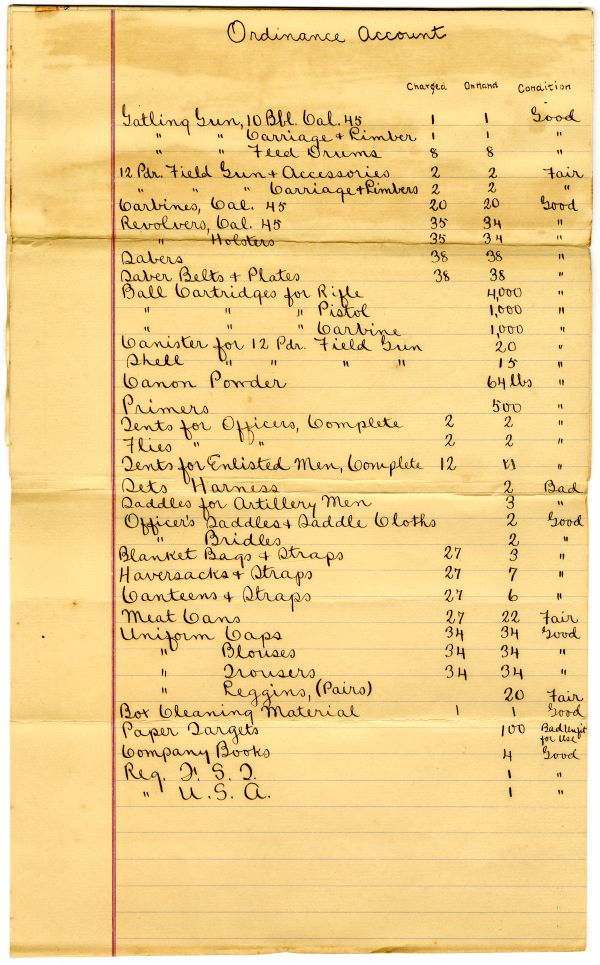 Ordinance Account
Charged On Hand Condition
Gatling Gun, 10 Bbl. Cal. 45 1 1 Good
" " Carriage & Limber 1 1 "
" " Feed Drums 8 8 "
12 Pdr. Field Gun & Accessories 2 2 Fair
" " " Carriage & Limbers 2 2 "
Carbines, Cal. 45 20 20 Good
Revolvers, Cal. 45 35 34 "
" Holsters 35 34 "
Sabers 38 38 "
Saber Belts & Plates 38 38 "
Ball Cartridges for Rifle 4,000 "
" " " Pistol 1,000 "
" " " Carbine 1,000 "
Canister for 12 Pdr. Field Gun 20 "
Shell " " " " 15 "
Canon Powder 64 lbs "
Primers 500 "
Tents for Officers, Complete 2 2 "
Flies " " 2 2 "
Tents for Enlisted Men, Complete 12 "
Sets Harness 2 Bad
Saddles for Artillery Men 3 "
Officer's Saddles & Saddle Cloths 2 Good
" Bridles 2 "
Blanket Bags & Straps 27 3 "
Haversacks & Straps 27 7 "
Canteens & Straps 27 6 "
Meat Cans 27 22 Fair
Uniform Caps 34 34 Good
" Blouses 34 34 "
" Trousers 34 34 "
" Leggins, (Pairs) 20 Fair
Box Cleaning Material 1 1 Good
Paper Targets 100 Bad Unfit
for Use
Company Books 4 Good
Reg. F. S. T. 1 "
" U. S. A. 1 "